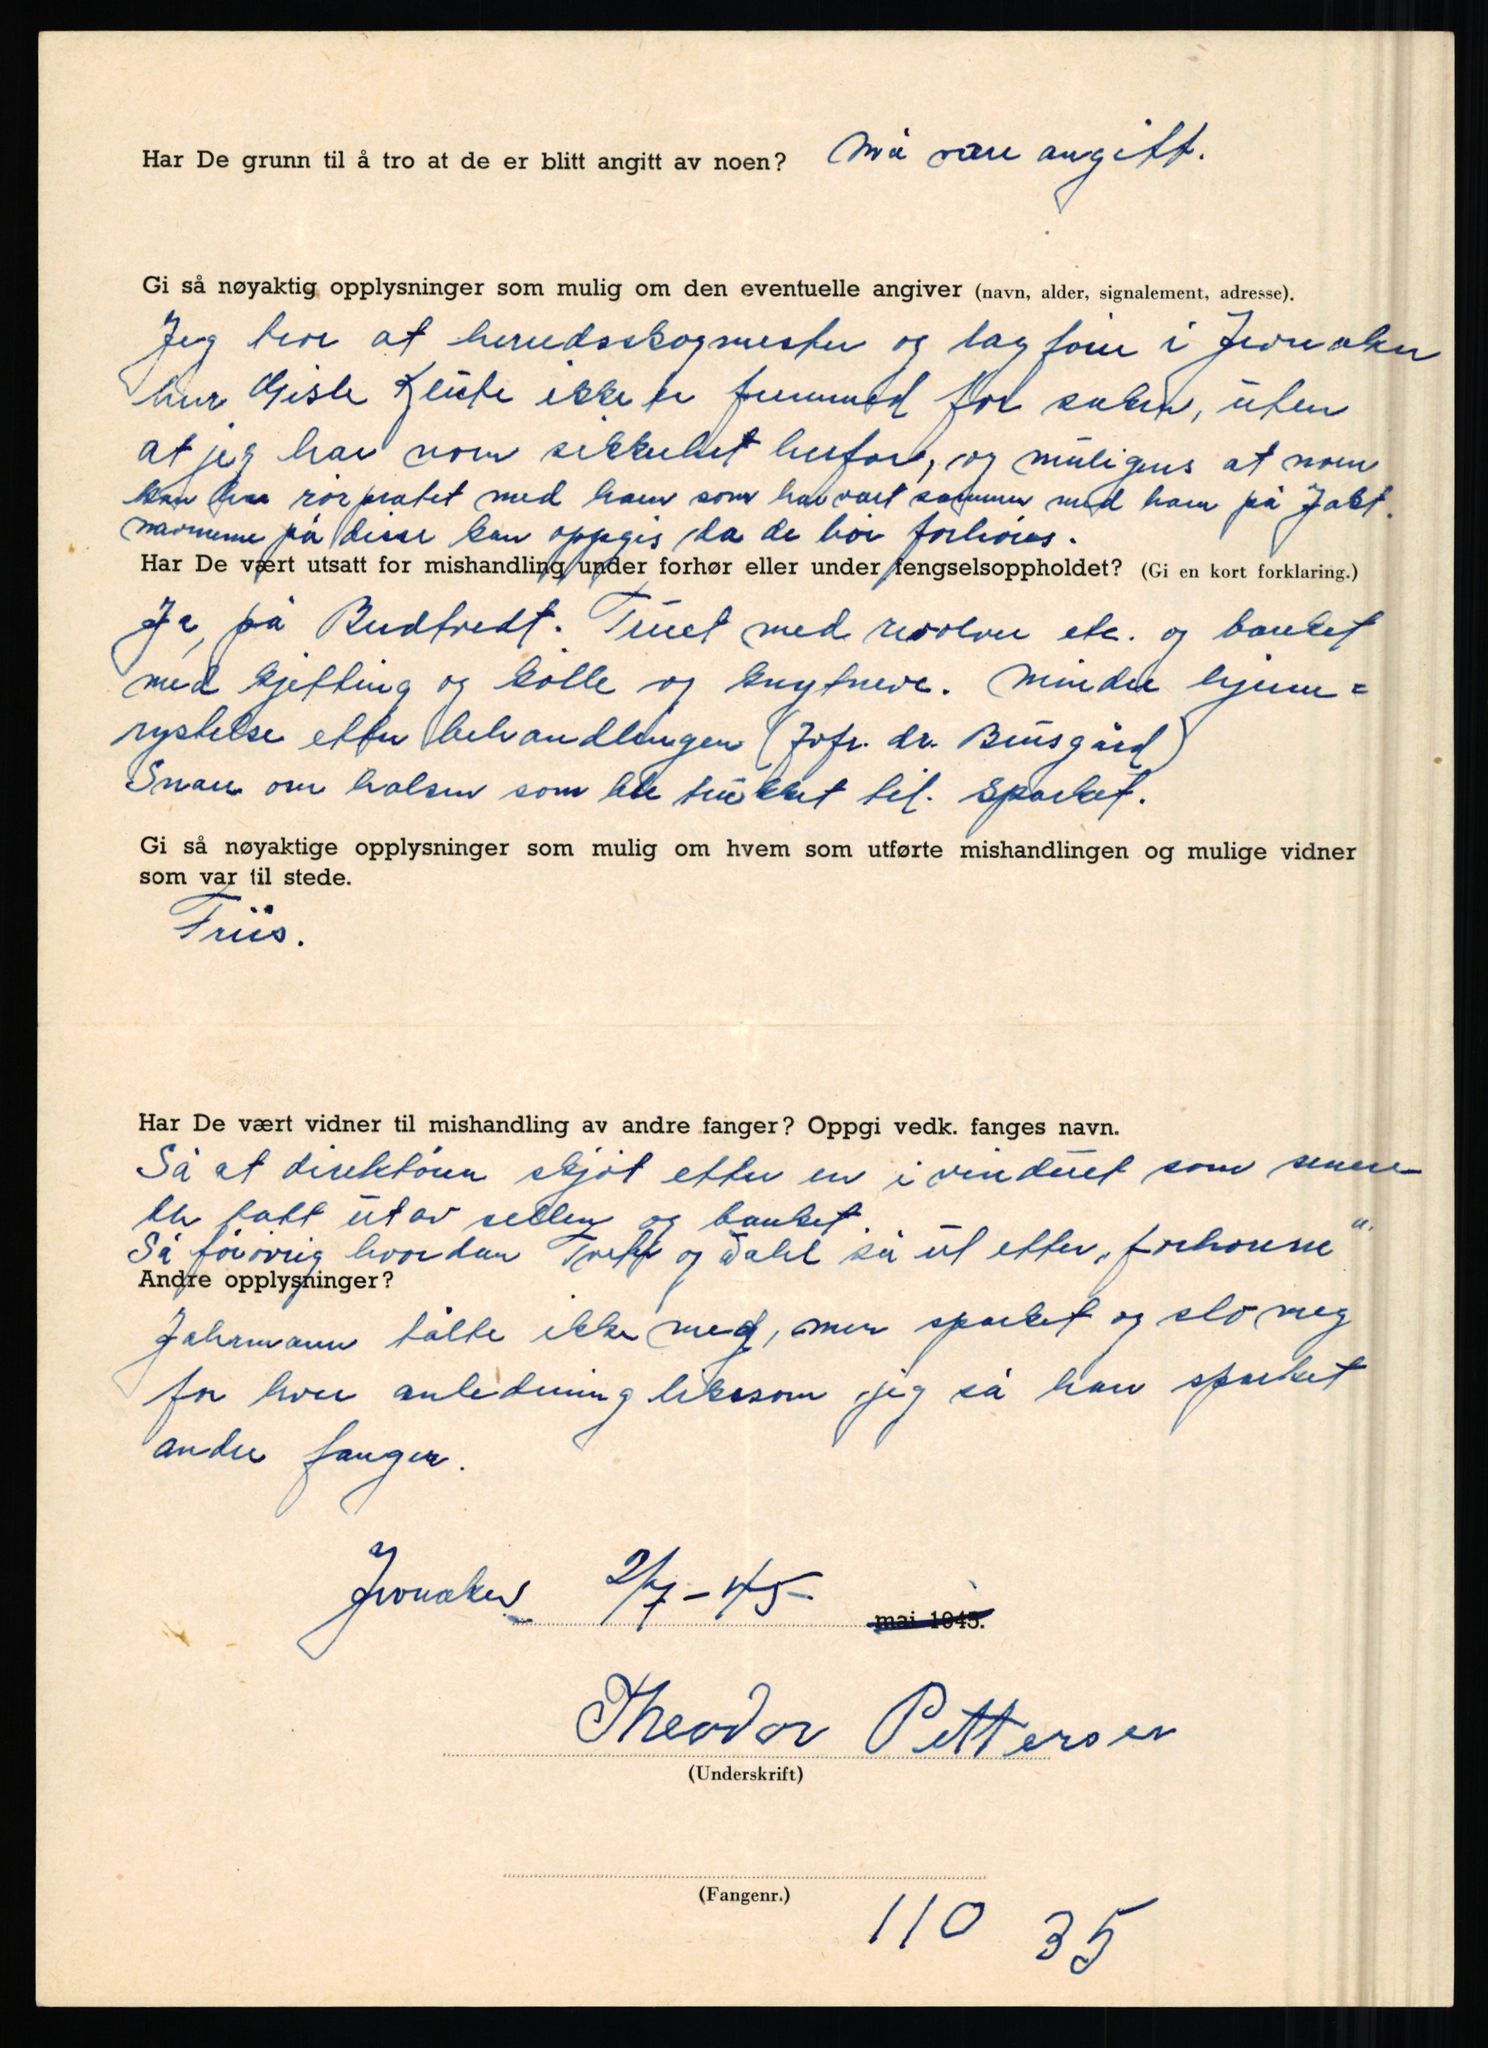 Har De grunn til å tro at de er blitt angitt av noen? Må være angitt.
Gi så nøyaktig opplysninger som mulig om den eventuelle angiver (navn, alder, signalement, adresse).
Jeg tror at herredsskogmester og lagfører i Jevnaker
herr Gisle ikke er fremmed for saken, uten
at jeg har noen sikkerhet herfor, og muligens at noen
kan ha rørpratet med ham som har vært sammen med ham på Jakt.
navnene på disse kan oppgis da de bør forhøres.
Har De vært utsatt for mishandling under forhør eller under fengselsoppholdet? (Gi en kort forklaring.)
Ja, på Bredtvedt. Truet med revolver etc. og banket
med kjetting og kølle og knytneve. Mindre hjerne=
rystelse etter behandlingen (Jvfr. dr. Bensgård)
Snare om halsen som ble trukket til. Sparket.
Gi så nøyaktige opplysninger som mulig om hvem som utførte mishandlingen og mulige vidner
som var til stede.
Friis.
Har De vært vidner til mishandling av andre fanger? Oppgi vedk. fanges navn.
Så at direktøren skjøt etter en i vinduet som senere
ble tatt ut av sellen og banket.
Så forøvrig hvordan og Dahl så ut etter „forhørene"
Andre opplysninger?
Jahrmann tålte ikke meg, men sparket og slo meg
for hver anledning likesom jeg så han sparket
andre fanger.
Jevnaker 2/7-45- mai 1945.
Theodor Pettersen
(Underskrift)
(Fangenr.)
110 35